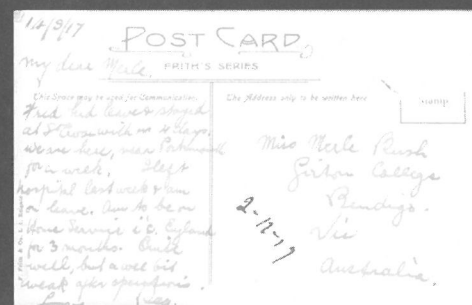 14/9/17
POST CARD
FRITH'S SERIES
My dear Merle,
This Space may be used for Communication.
The Address only to be written here
Stamp
Fred had leave & stayed
at with us 4 days.
We are here, near Portsmouth
for a week. I left
hospital last week & am
on leave. Am to be on
Home Service i.e. England
for 3 months. Quite
well, but a wee bit
weak after operations.
Miss Merle Bush
Girton College
Bendigo.
Vic
Australia.
2-12-17